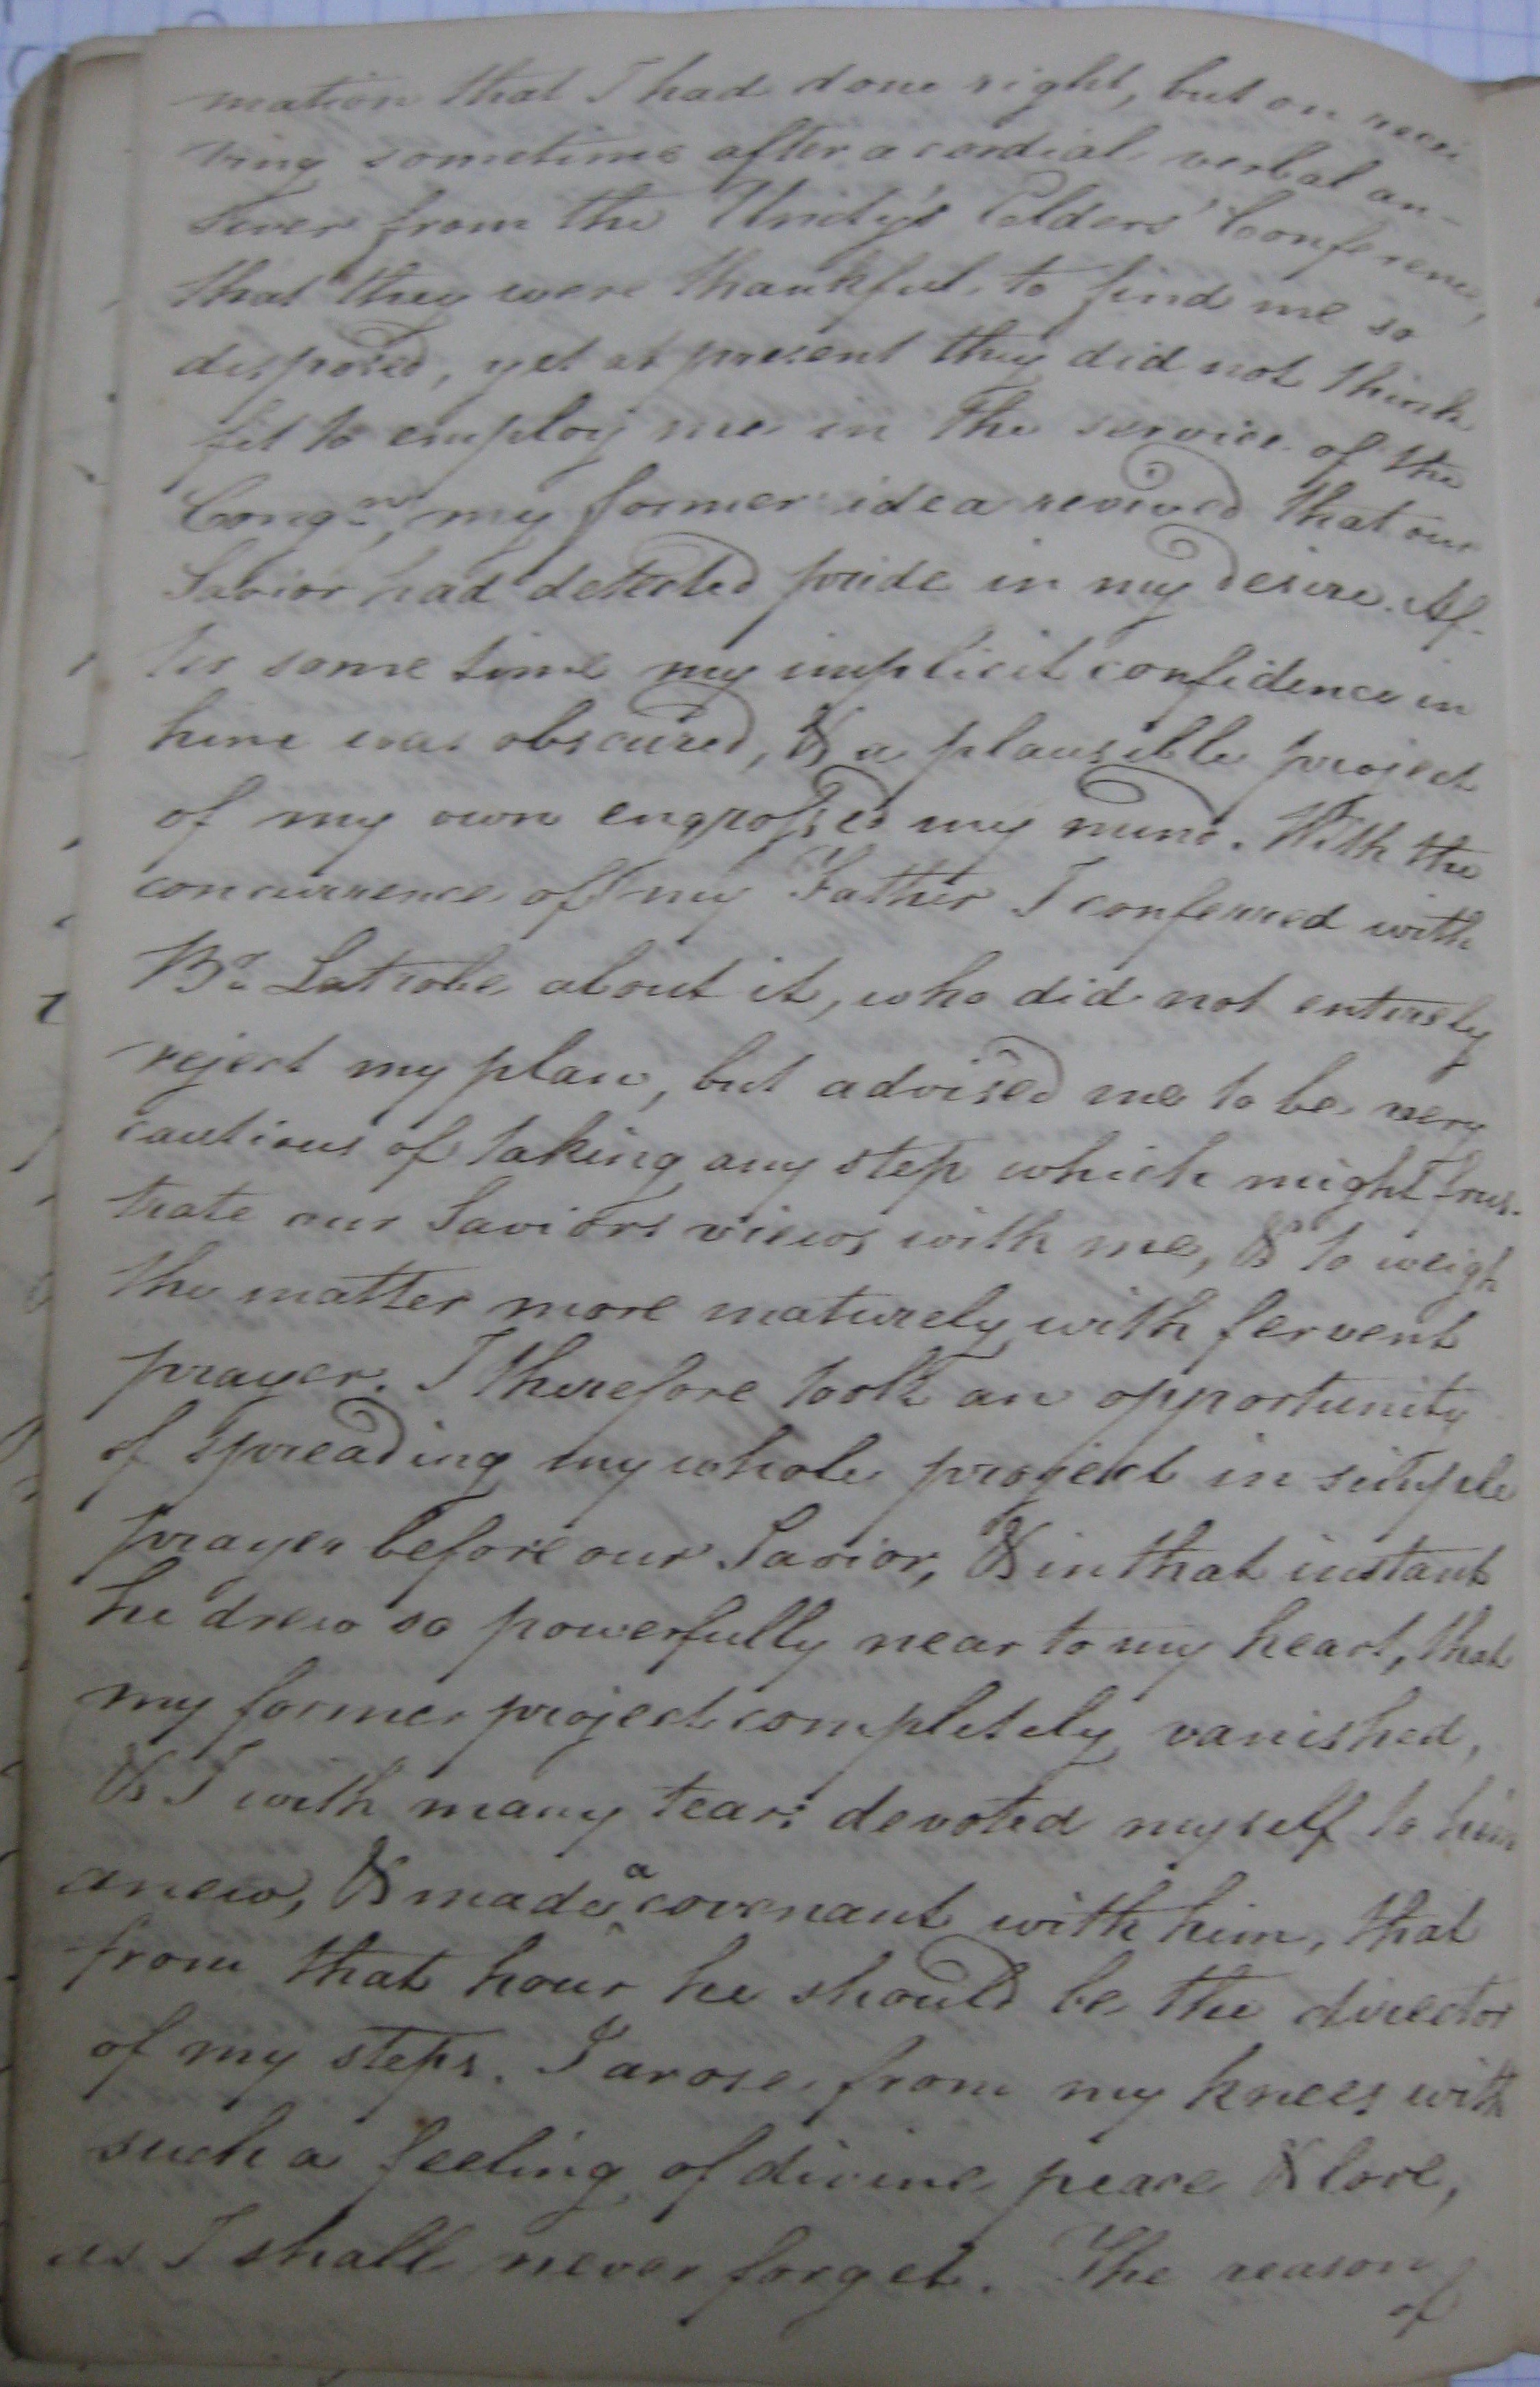 mation that I had done right, but on recei
ving sometime after a cordial verbal an-
swer from the Unity's Elders' Conference,
that they were thankful to find me so
disposed, yet at present they did not think
fit to employ me in the service of the
Congn, my former idea revived that our
Savior had detected pride in my desire. Af-
ter some time my implicit confidence in
him was obscured, & a plausible project
of my own engrossed my mind. With the
concurrence of my Father I conferred with
Br. Latrobe about it, who did not entirely
reject my plan, but advised me to be very
cautious of taking any step which might frus-
trate our Saviors views with me, & to weigh
the matter more maturely with fervent
prayer. I therefore took an opportunity
of spreading my whole project in simple
prayer before our Savior, & in that instant
he drew so powerfully near to my heart, that
my former project completely vanished,
& I with many tears devoted myself to him
anew, & made a covenant with him, that
from that hour he should be the director
of my steps. I arose from my knees with
such a feeling of divine peace & love,
as I shall never forget. The reason
of